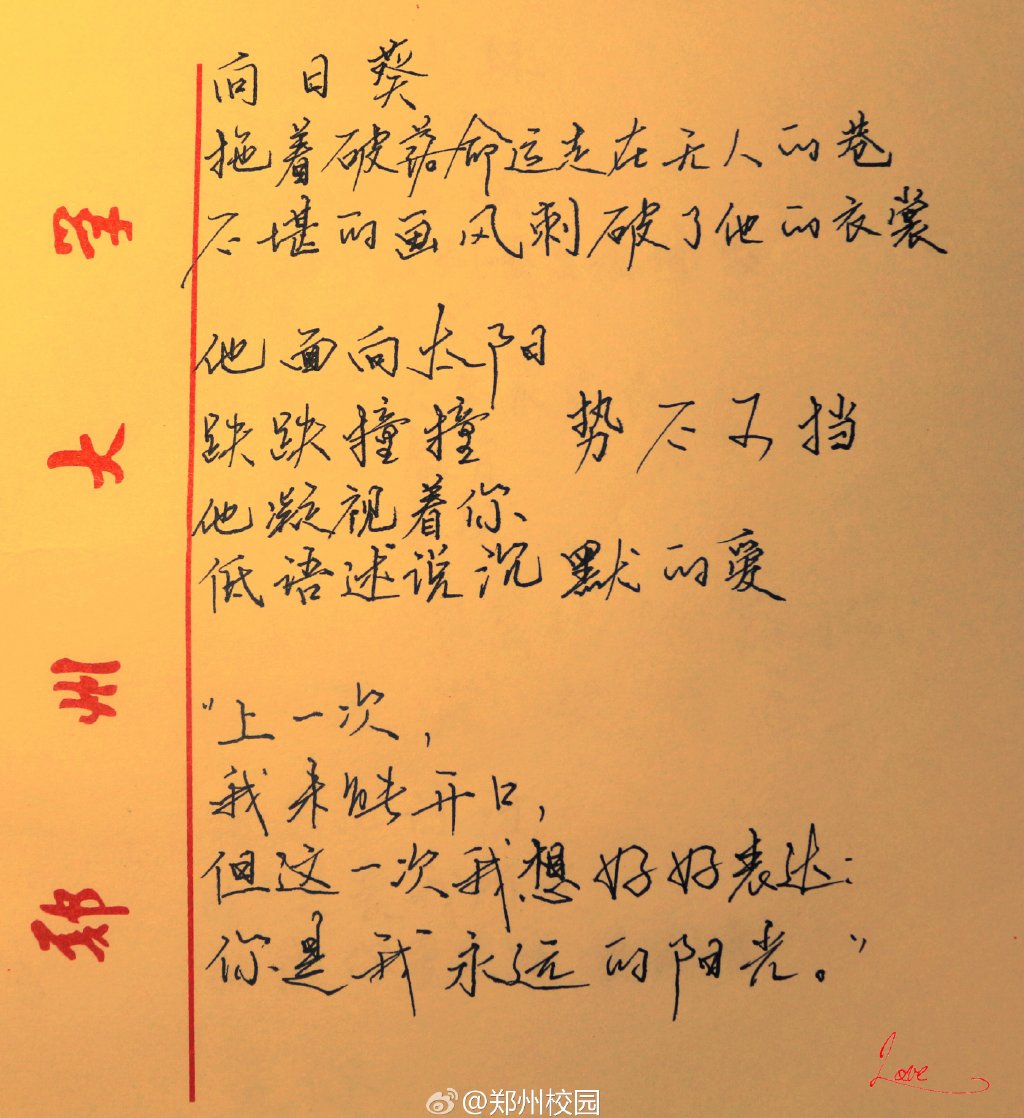 向日葵
拖着破落命运走在无人的巷
不堪的画风刺破了他的衣裳
他面向太阳
跌跌撞撞 势不可挡
他凝视着你
低语述说沉默的爱
“上一次,
我未能开口,
但这一次我想好好表达:
你是我永远的阳光。”
郑州大学
Love
@郑州校园